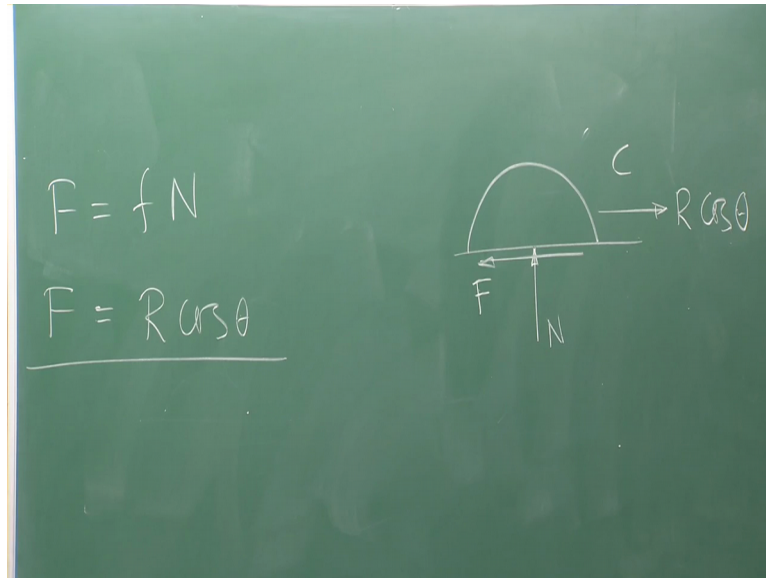 F = fN
F = R cos θ
C
R cos θ
F
N